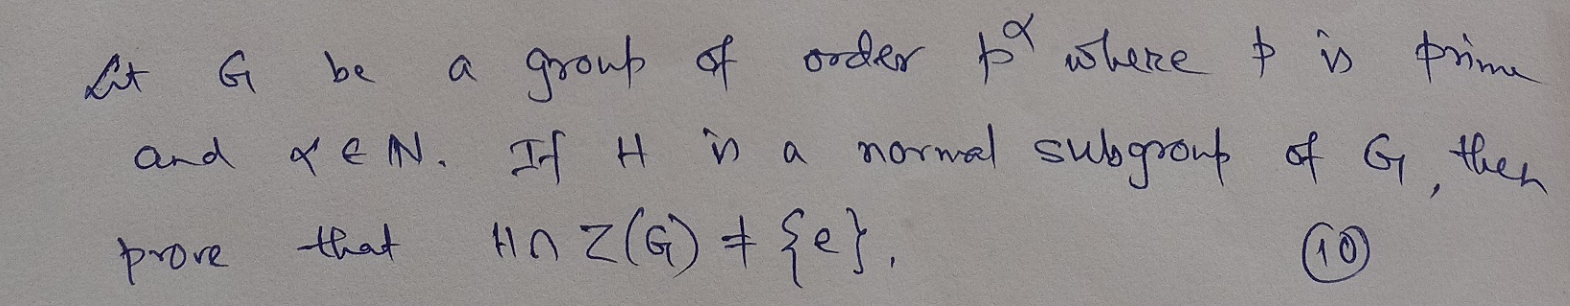 Let G be a group of order p^α where p is prime
and α ∈ N. If H is a normal subgroup of G, then
prove that H∩Z(G) ≠ {e}. (10)